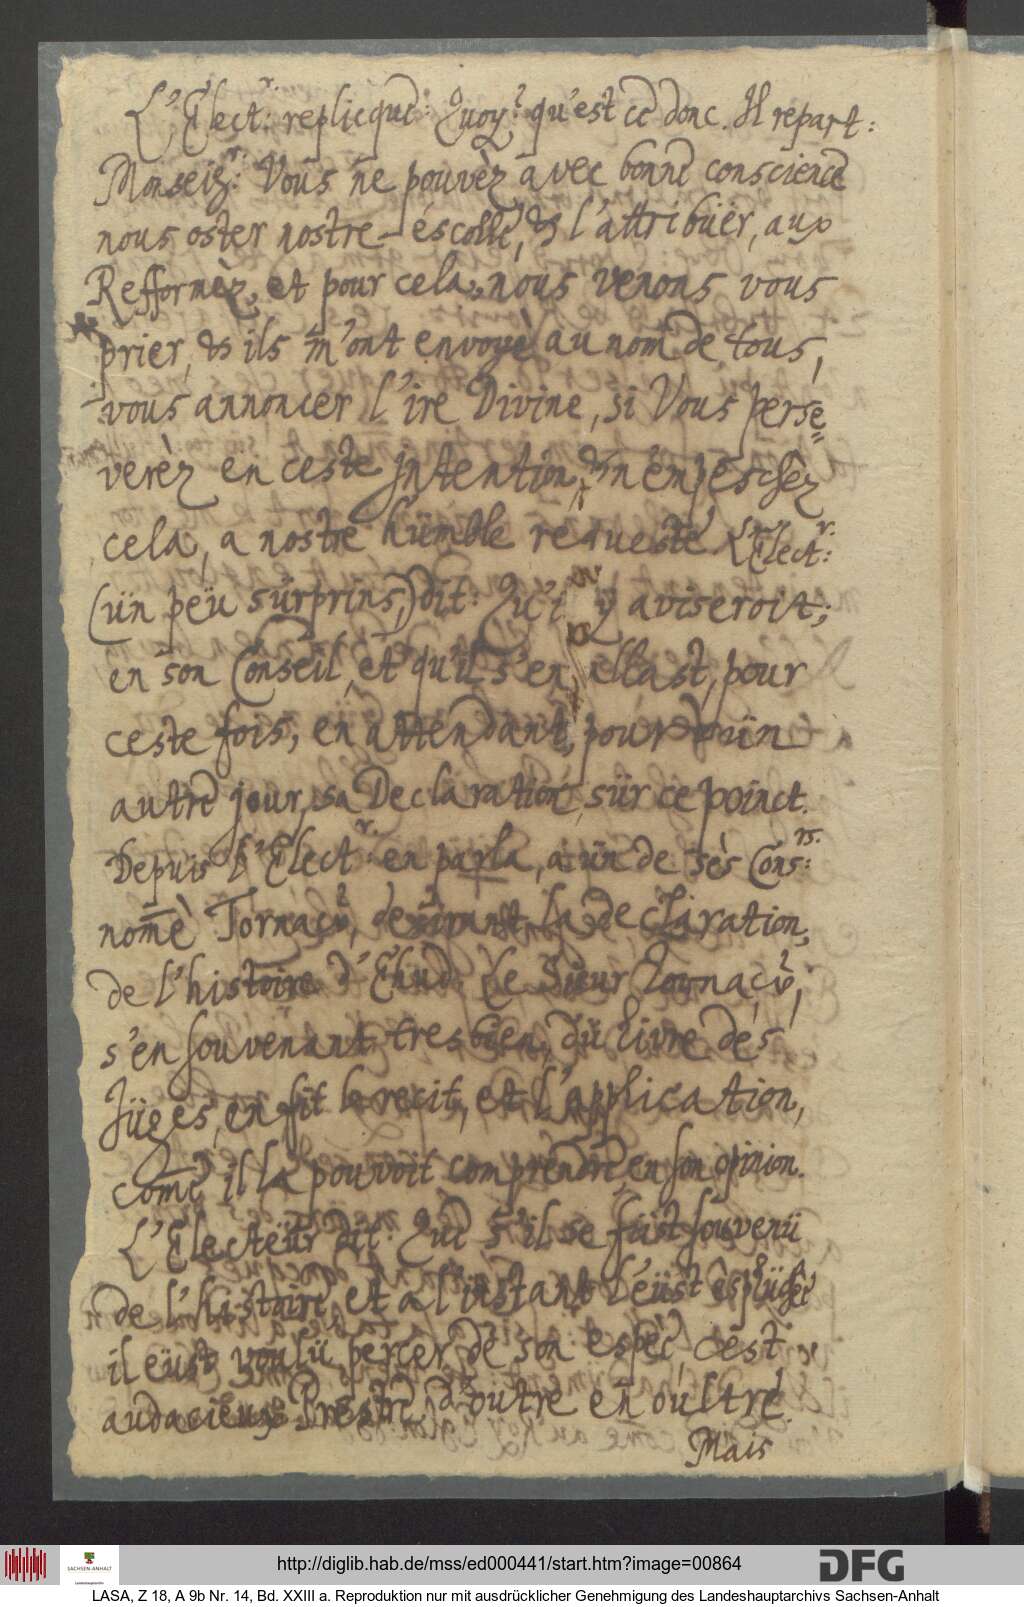 L'Elect.r: replicque: Quoy? qu'est ce donc. Il repart:
Monseig.r: Vous ne pouvèz avec bonne conscience
nous oster nostre escolle, & l'attribuër, aux
Refformèz, et pour cela, nous venons vous
prier, & ils m'ont envoyé au nom de tous,
vous annoncer l'ire Divine, si Vous perse=
verèz en ceste jntention, & n'enpeschez
cela, a nostre hümble requeste L'Elect.r:
(ün peü sürprins,) dit: Qu'i y aviseroit;
en son Conseil, et qu'il s'en allast, pour
ceste fois, en attendant, pour ün
autre jour, sa Declaration, sür ce poinct.
Depuis L'Elect.r: en parla, a ün de ses Cons.rs:
nom̄è Tornaçü, desirant la declaration,
de l'histoire d'Ehud. Le Sieur Tornaçü,
s'en souvenant tresbien, dü Livre des
Jüges, en fit le recit, et l'application,
com̄e il la pouvoit comprendre, en son opinion.
L'Electeür dit: Que s'il se füst souvenü
de l'histoire, et a l'instant l'eüst esplüchée
il eüst voulü percer de son espée, cest
audacieux Prestre d'outre en oultre.
Mais
http://diglib.hab.de/mss/ed000441/start.htm?image=00864
DFG
SACHSEN-ANHALT
LASA, Z 18, A 9b Nr. 14, Bd. XXIII a. Reproduktion nur mit ausdrücklicher Genehmigung des Landeshauptarchivs Sachsen-Anhalt